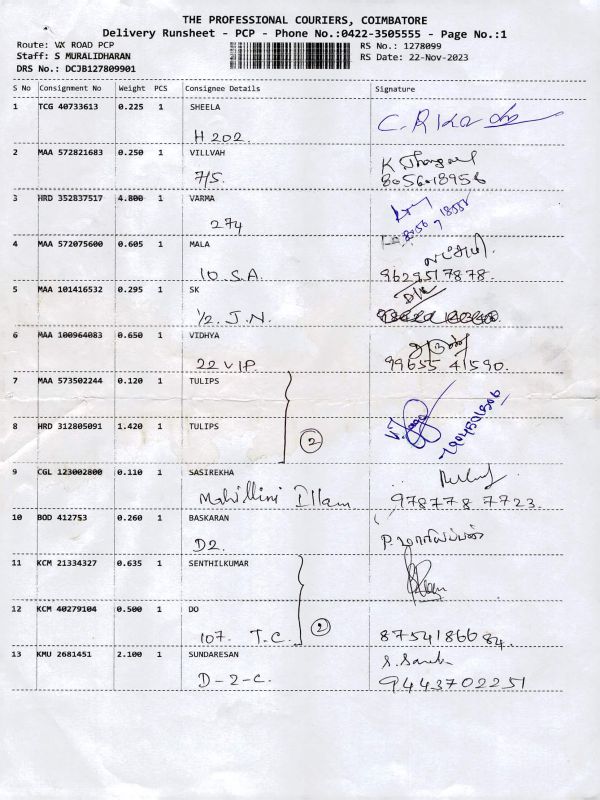 THE PROFESSIONAL COURIERS, COIMBATORE
Delivery Runsheet - PCP - Phone No.:0422-3505555 - Page No.:1
Route: VX ROAD PCP
RS No.: 1278099
Staff: S MURALIDHARAN
RS Date: 22-Nov-2023
DRS No.: DCJB127809901
S No Consignment No Weight PCS Consignee Details Signature
1 TCG 40733613 0.225 1 SHEELA
H 202.
2 MAA 572821683 0.250 1 VILLVAH
7/5. 8056018956
3 HRD 352837517 4.800 1 VARMA
274
4 MAA 572075600 0.605 1 MALA
10 S.A. 9629517878.
5 MAA 101416532 0.295 1 SK
1/2. J.N.
6 MAA 100964083 0.650 1 VIDHYA
22 V.I.P. 99655 41590.
7 MAA 573502244 0.120 1 TULIPS
8 HRD 312805091 1.420 1 TULIPS
2
9 CGL 123002800 0.110 1 SASIREKHA
Mahillini Illam 978778 7723.
10 BOD 412753 0.260 1 BASKARAN
D2.
11 KCM 21334327 0.635 1 SENTHILKUMAR
12 KCM 40279104 0.500 1 DO
107. T.C. 2 8754186684.
13 KMU 2681451 2.100 1 SUNDARESAN
D-2-C. 9443702251